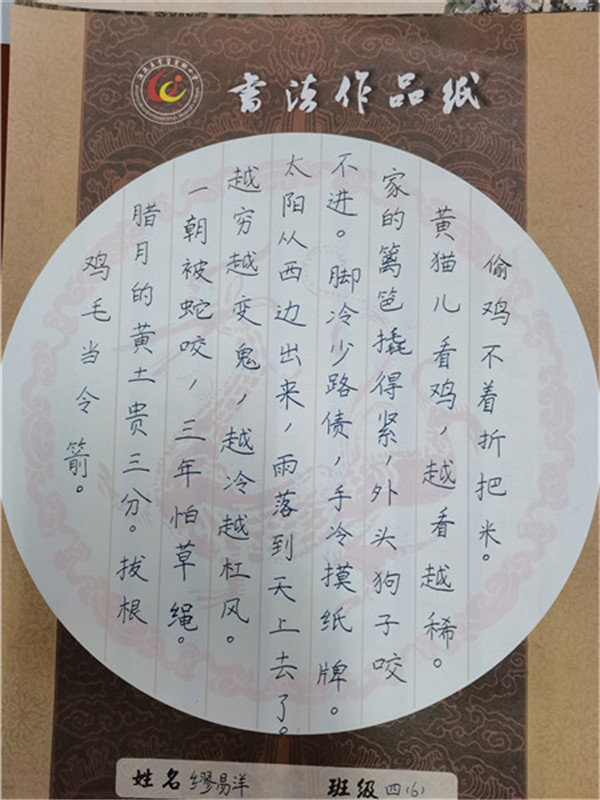 书法作品纸
偷鸡不着折把米。
黄猫儿看鸡,越看越稀。
家的篱笆撬得紧,外头狗子咬
不进。脚冷少路债,手冷摸纸牌。
太阳从西边出来,雨落到天上去了。
越穷越变鬼,越冷越杠风。
一朝被蛇咬,三年怕草绳。
腊月的黄土贵三分。拔根
鸡毛当令箭。
姓名 缪易洋 班级 四(6)